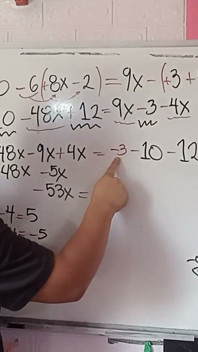 0 -6(+8x-2)=9x-(+3+
10 -48x+12=9x-3-4x
48x-9x+4x = -3-10-12
48x -5x
-53x=
-4=5
-4=-5